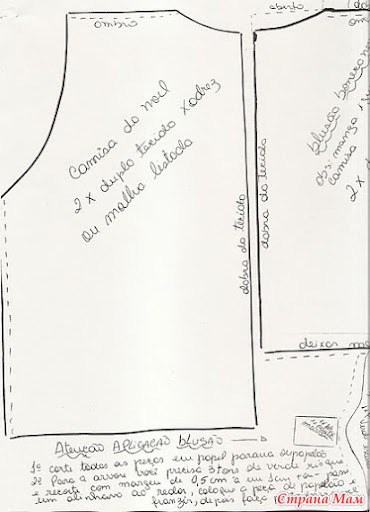 ombro
aberto
om
Camisa do noel
2 x duplo tecido xadrez
ou malha listada
blusão boneco n
obs: manga
camisa
2 x d
dobra do tecido
dobra do tecido
deixar ma
Atenção Aplicação blusão
1º corte todas as peças em papel paraná ou papelão
2º Para a arvore você precisa 3 tons de verde risque
e recorte com margem de 0,5cm a um 1cm
um alinhavo ao redor, coloque a peça de papelão e
franzir, depois faça
Страна Мам